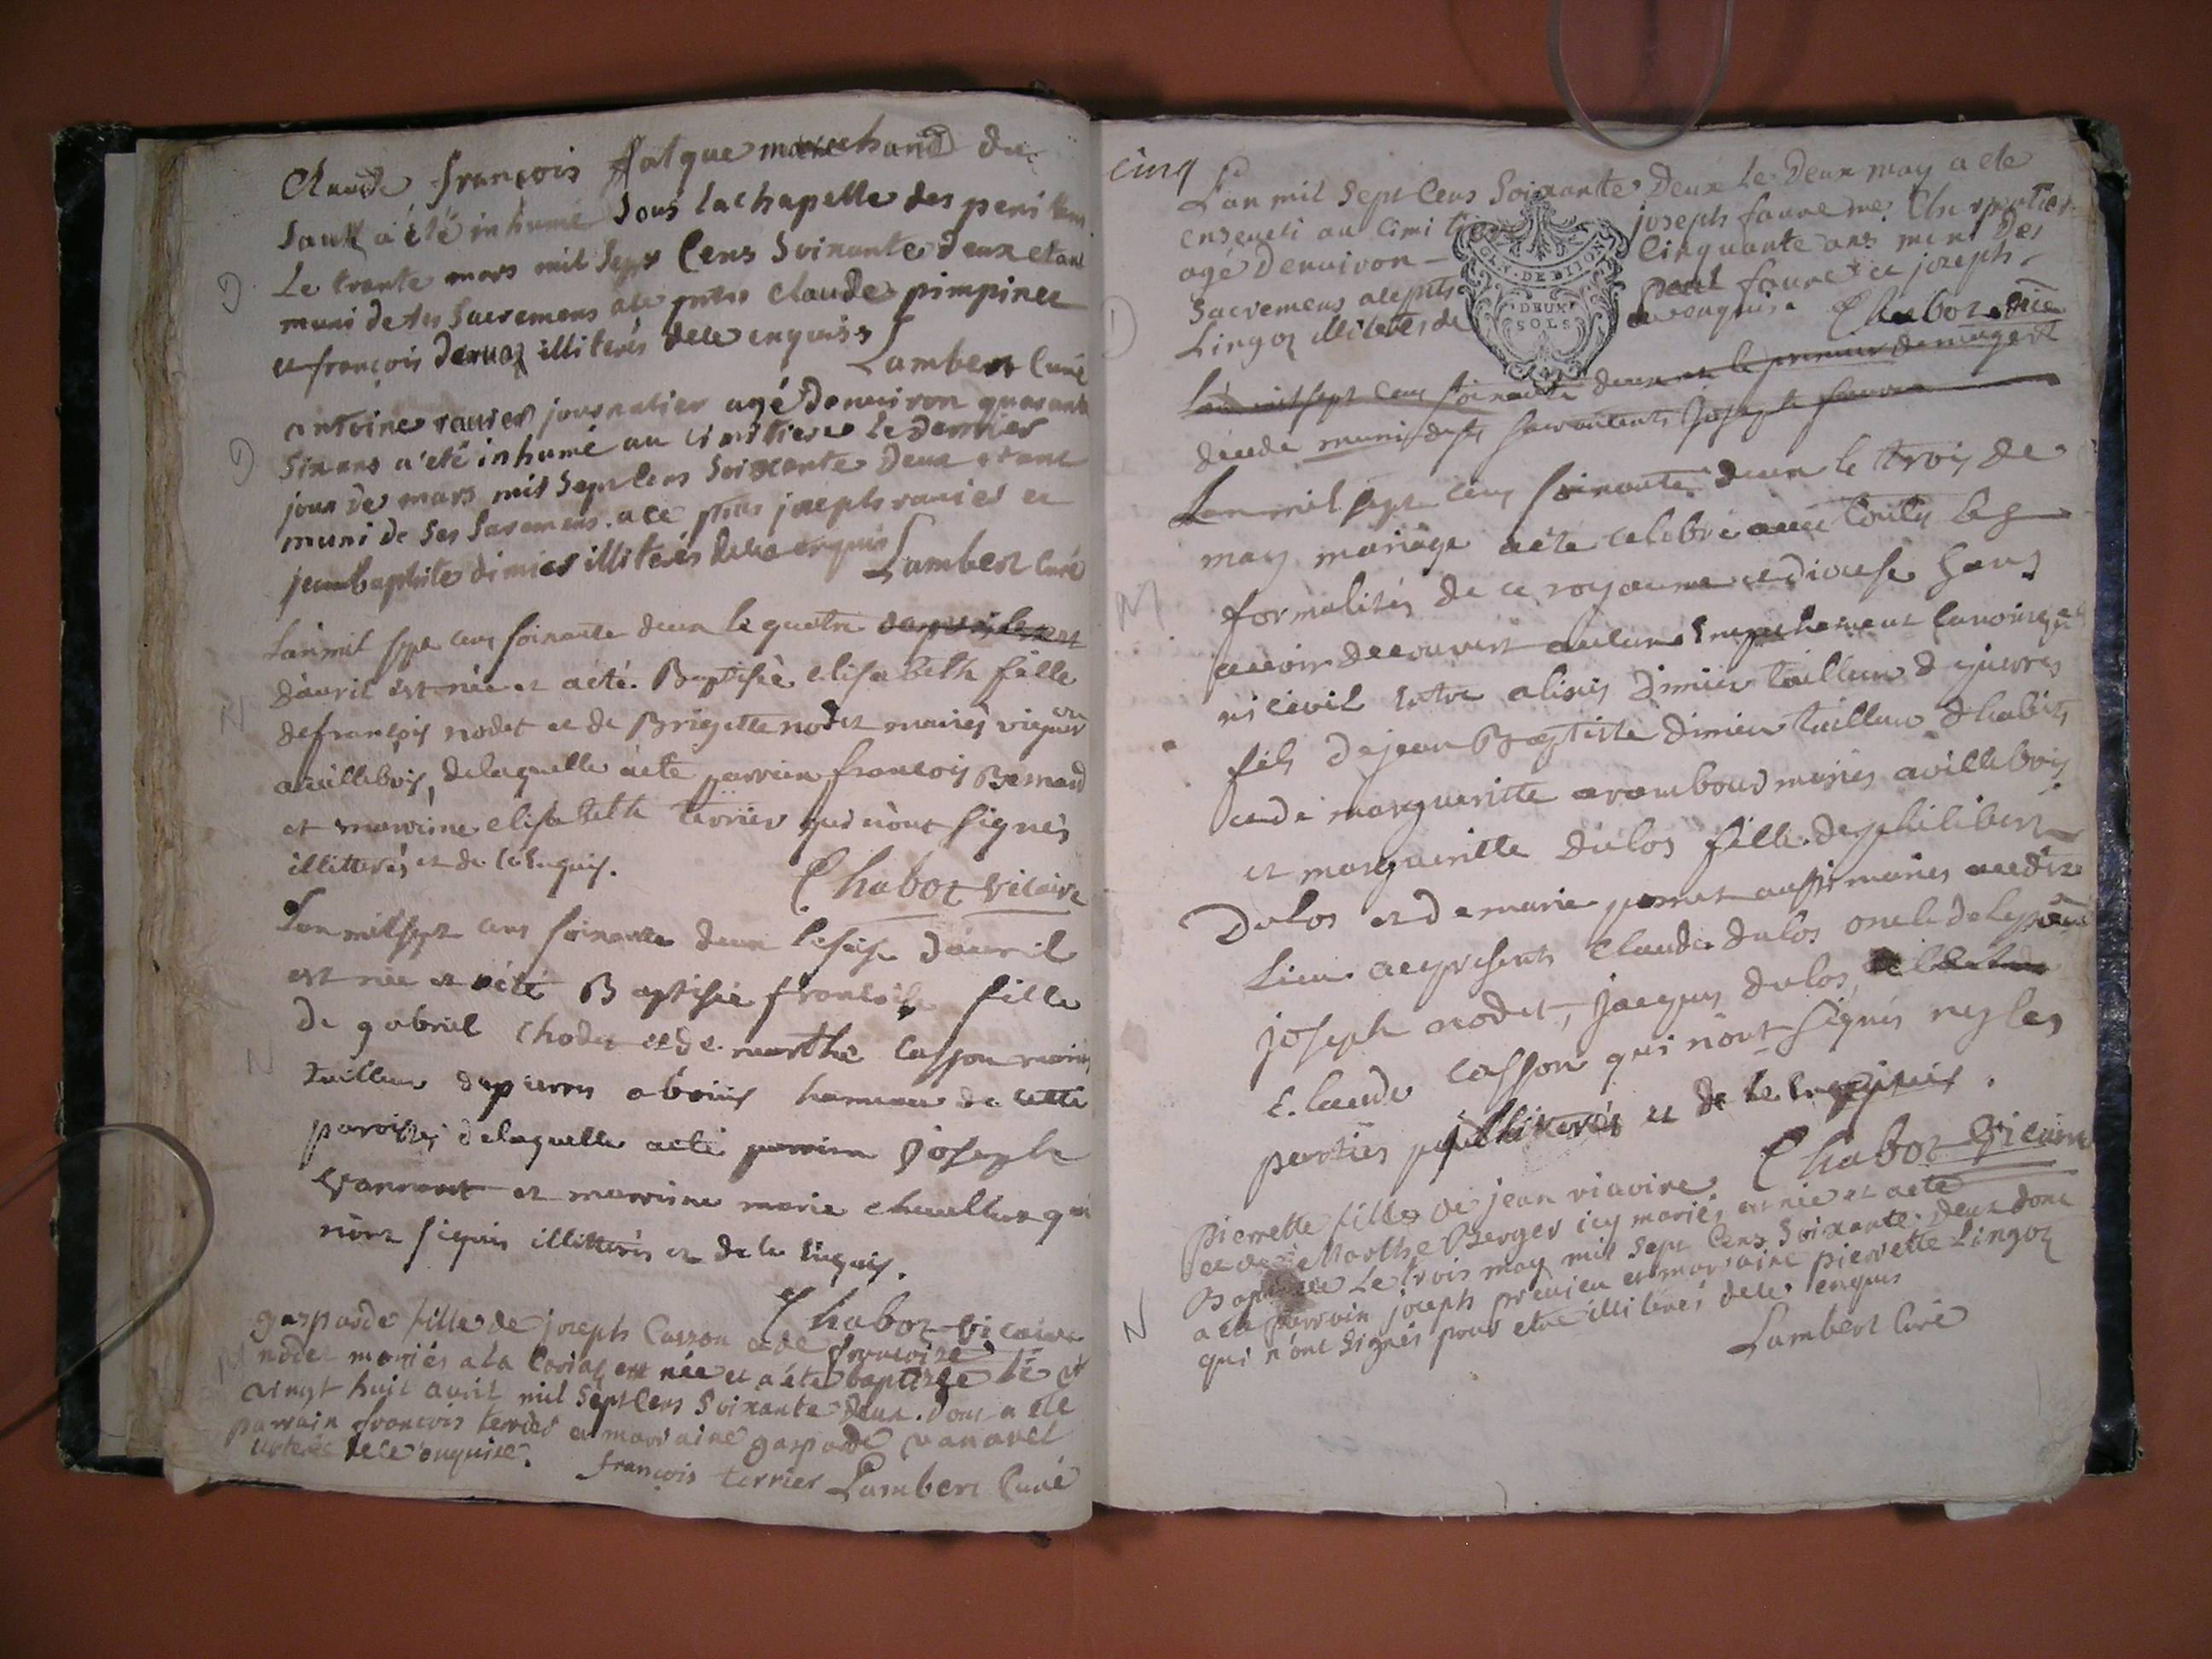 Claude françois falque marchand du
Sault a été inhumé sous la chapelle des peniten
Le trante mars mil sept Cens Soixante deux etant
muni de ses Sacremens ace pntes Claude pimpinet
et françois dervaz illiterés dele enquis
Lambert Curé
antoine ravier journalier agé denviron quarante
Six ans a été inhumé au cimitiere le dernier
jour de mars mil Sept Cens Soixante deux etant
muni de Ses Saremens. ace pntes joseph ravier et
jean baptiste dimier illiterés dele enquis
Lambert Curé
L'an mil sept cens soixante deux le quatre
d'avril est née et a été Baptisée elisabeth fille
de françois nodet et de Brigette nodet mariés vigneron
a villebois, de laquelle a été parrein françois Bernard
et marreine elisabeth terrier qui n'ont signés
illitterés et de ce Enquis.
Chabot vicaire
L'an mil sept cens soixante deux le seise d'avril
est née et a été Baptisée françoise fille
de gabriel Chodet et de marthe Casson mariés
tailleur de pierres a bouis hameau de cette
paroisse de laquelle a été parrein Joseph
Vannaret et marreine marie chevelleux qui
n'ont signés illitterés et de ce Enquis.
Chabot vicaire
gasparde fille de joseph Casson et de françoise
nodet mariés a la Coriaz est née et a été baptisée le
vingt huit avril mil Sept Cens Soixante deux. dont a été
parrain françois terrier et marraine gasparde vanarel
illiterée dele enquise.
françois terrier Lambert Curé
cinq
L'an mil Sept Cens Soixante Deux Le Deux may a eté
enseveli au Cimitiere joseph faure me Charpentier
agé Denviron - Cinquante ans muni Des
Sacremens ace pntes paul faure et joseph
Lingoz illiterés de ce enquis. Chabot vicaire
GEN. DE DIJON
DEUX
SOLS
L'an mil sept cens soixante deux et le premier de may est
décédé muni de ses sacrements Joseph faure
L'an mil sept cens soixante deux le trois de
may mariage a été celebré avec toutes les
formalités de ce royaume et diocese sans
avoir decouvert aucun Empechement canonique
ni civil entre alexis Dimier tailleur de pierres
fils de jean Baptiste dimier tailleur d'habits
et de margueritte arambourd mariés a villebois
et margueritte dulos fille de philibert
Dulos et de marie perret aussi mariés audit
Lieu ace presents Claude dulos oncle de l'epouse
joseph nodet, jacques dulos,
Claude Casson qui n'ont signés ny les
parties illiterés et de ce Enquis.
Chabot Vicaire
Pierrette fille de jean riavire
et de Marthe Berger icy mariés est née et a été
Baptisée Le trois may mil Sept Cens Soixante Deux dont
a été parrain joseph preuieu et marraine pierrette Lingoz
qui n'ont Signés pour etre illiterés dele enquis
Lambert Curé